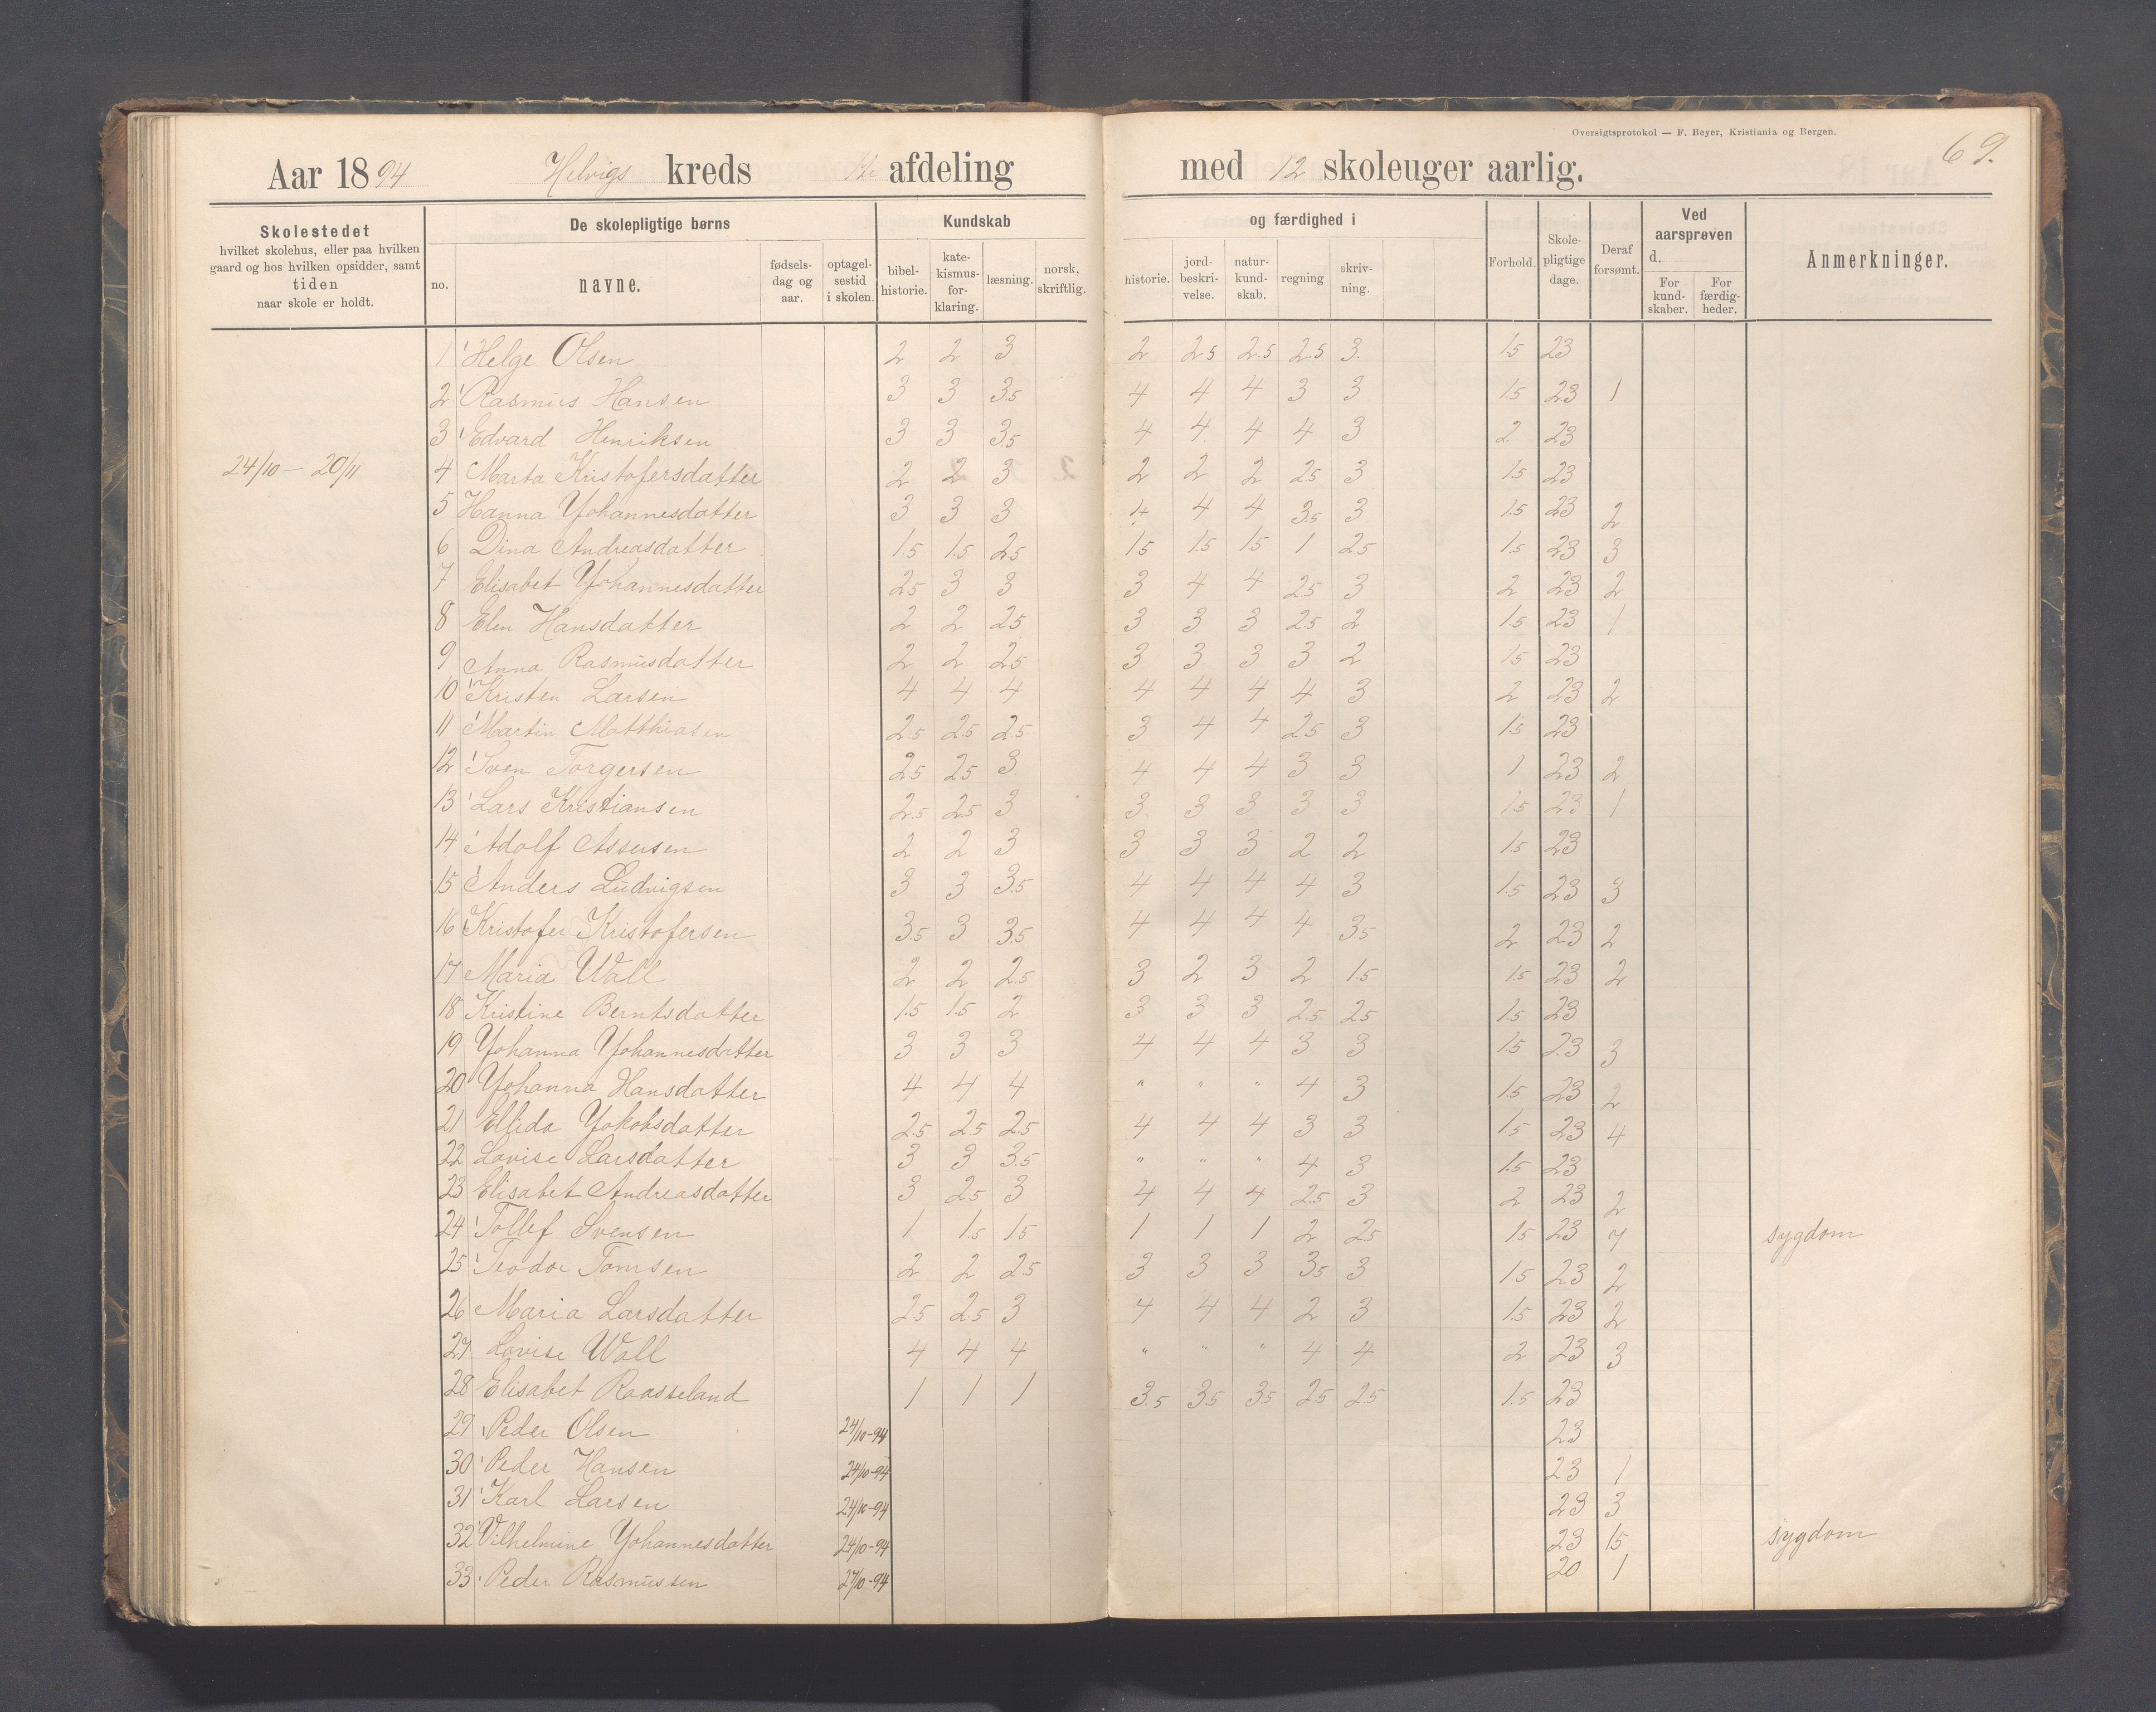 Oversigtsprotokol — F. Beyer, Kristiania og Bergen.
69.
Aar 1894 Helvigs kreds afdeling med 12 skoleuger aarlig.
Skolestedet hvilket skolehus, eller paa hvilken gaard og hos hvilken opsidder, samt tiden naar skole er holdt.
De skolepligtige børns
no. navne. fødsels-dag og aar. optagel-sestid i skolen.
Kundskab og færdighed i
bibel-historie. kate-kismus-for-klaring. læsning. norsk, skriftlig. historie. jord-beskri-velse. natur-kund-skab. regning skriv-ning.
Forhold. Skole-pligtige dage. Deraf forsømt.
Ved aarsprøven d. For kund-skaber. For færdig-heder.
Anmerkninger.
1 Helge Olsen 2 2 3 2 2.5 2.5 2.5 3. 1.5 23
2 Rasmus Hansen 3 3 3.5 4 4 4 3 3 1.5 23 1
3 Edvard Henriksen 3 3 3.5 4 4 4 4 3 2 23
24/10 — 20/11 4 Marta Kristofersdatter 2 2 3 2 2 2 2.5 3 1.5 23
5 Hanna Johannesdatter 3 3 3 4 4 4 3.5 3 1.5 23 2
6 Dina Andreasdatter 1.5 1.5 2.5 1.5 1.5 1.5 1 2.5 1.5 23 3
7 Elisabet Johannesdatter 2.5 3 3 3 4 4 2.5 3 2 23 2
8 Elen Hansdatter 2 2 2.5 3 3 3 2.5 2 1.5 23 1
9 Anna Rasmusdatter 2 2 2.5 3 3 3 3 2 1.5 23
10 Kristen Larsen 4 4 4 4 4 4 4 3 2 23 2
11 Martin Matthiasen 2.5 2.5 2.5 3 4 4 2.5 3 1.5 23
12 Sven Torgersen 2.5 2.5 3 4 4 4 3 3 1 23 2
13 Lars Kristiansen 2.5 2.5 3 3 3 3 3 3 1.5 23 1
14 Adolf Assersen 2 2 3 3 3 3 2 2 1.5 23
15 Anders Ludvigsen 3 3 3.5 4 4 4 4 3 1.5 23 3
16 Kristofer Kristofersen 3.5 3 3.5 4 4 4 4 3.5 2 23 2
17 Maria Wall 2 2 2.5 3 2 3 2 1.5 1.5 23 2
18 Kristine Berntsdatter 1.5 1.5 2 3 3 3 2.5 2.5 1.5 23
19 Johanna Johannesdatter 3 3 3 4 4 4 3 3 1.5 23 3
20 Johanna Hansdatter 4 4 4 " " " 4 3 1.5 23 2
21 Ellida Jakobsdatter 2.5 2.5 2.5 4 4 4 3 3 1.5 23 4
22 Lovise Larsdatter 3 3 3.5 " " " 4 3 1.5 23
23 Elisabet Andreasdatter 3 2.5 3 4 4 4 2.5 3 2 23 2
24 Tollef Svensen 1 1.5 1.5 1 1 1 2 2.5 1.5 23 7 sygdom
25 Teodor Tomsen 2 2 2.5 3 3 3 3.5 3 1.5 23 2
26 Maria Larsdatter 2.5 2.5 3 4 4 4 2 3 1.5 23 2
27 Lovise Wall 4 4 4 " " " 4 4 2 23 3
28 Elisabet Raasseland 1 1 1 3.5 3.5 3.5 2.5 2.5 1.5 23
29 Peder Olsen 24/10-94 23
30 Peder Hansen 24/10-94 23 1
31 Karl Larsen 24/10-94 23 3
32 Vilhelmine Johannesdatter 24/10-94 23 15 sygdom
33 Peder Rasmussen 27/10-94 20 1